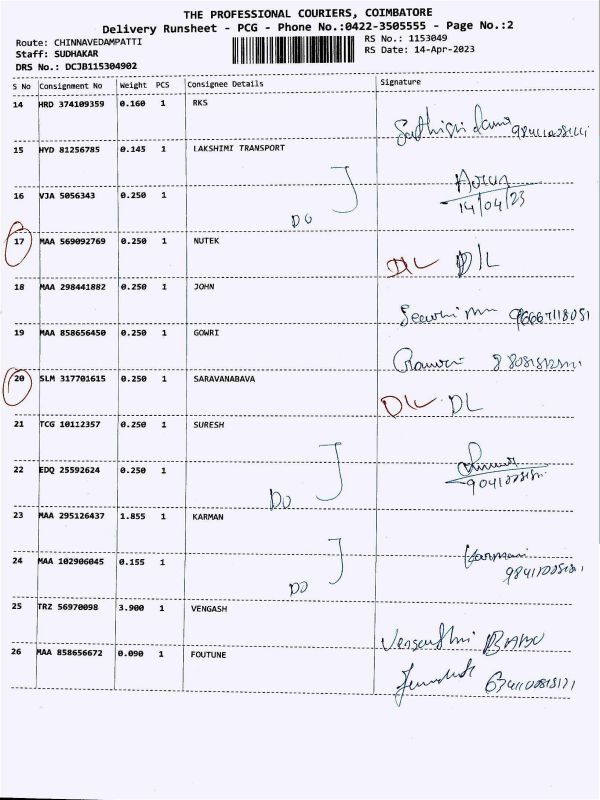 THE PROFESSIONAL COURIERS, COIMBATORE
Delivery Runsheet - PCG - Phone No.:0422-3505555 - Page No.:2
Route: CHINNAVEDAMPATTI
Staff: SUDHAKAR
DRS No.: DCJB115304902
RS No.: 1153049
RS Date: 14-Apr-2023
S No Consignment No Weight PCS Consignee Details Signature
14 HRD 374109359 0.160 1 RKS
15 HYD 81256785 0.145 1 LAKSHIMI TRANSPORT
16 VJA 5056343 0.250 1 DO
14/04/23
17 MAA 569092769 0.250 1 NUTEK DL D/L
18 MAA 298441882 0.250 1 JOHN
19 MAA 858656450 0.250 1 GOWRI
20 SLM 317701615 0.250 1 SARAVANABAVA DL DL
21 TCG 10112357 0.250 1 SURESH
22 EDQ 25592624 0.250 1 DO
23 MAA 295126437 1.855 1 KARMAN
24 MAA 102906045 0.155 1 DO
25 TRZ 56970098 3.900 1 VENGASH
26 MAA 858656672 0.090 1 FOUTUNE